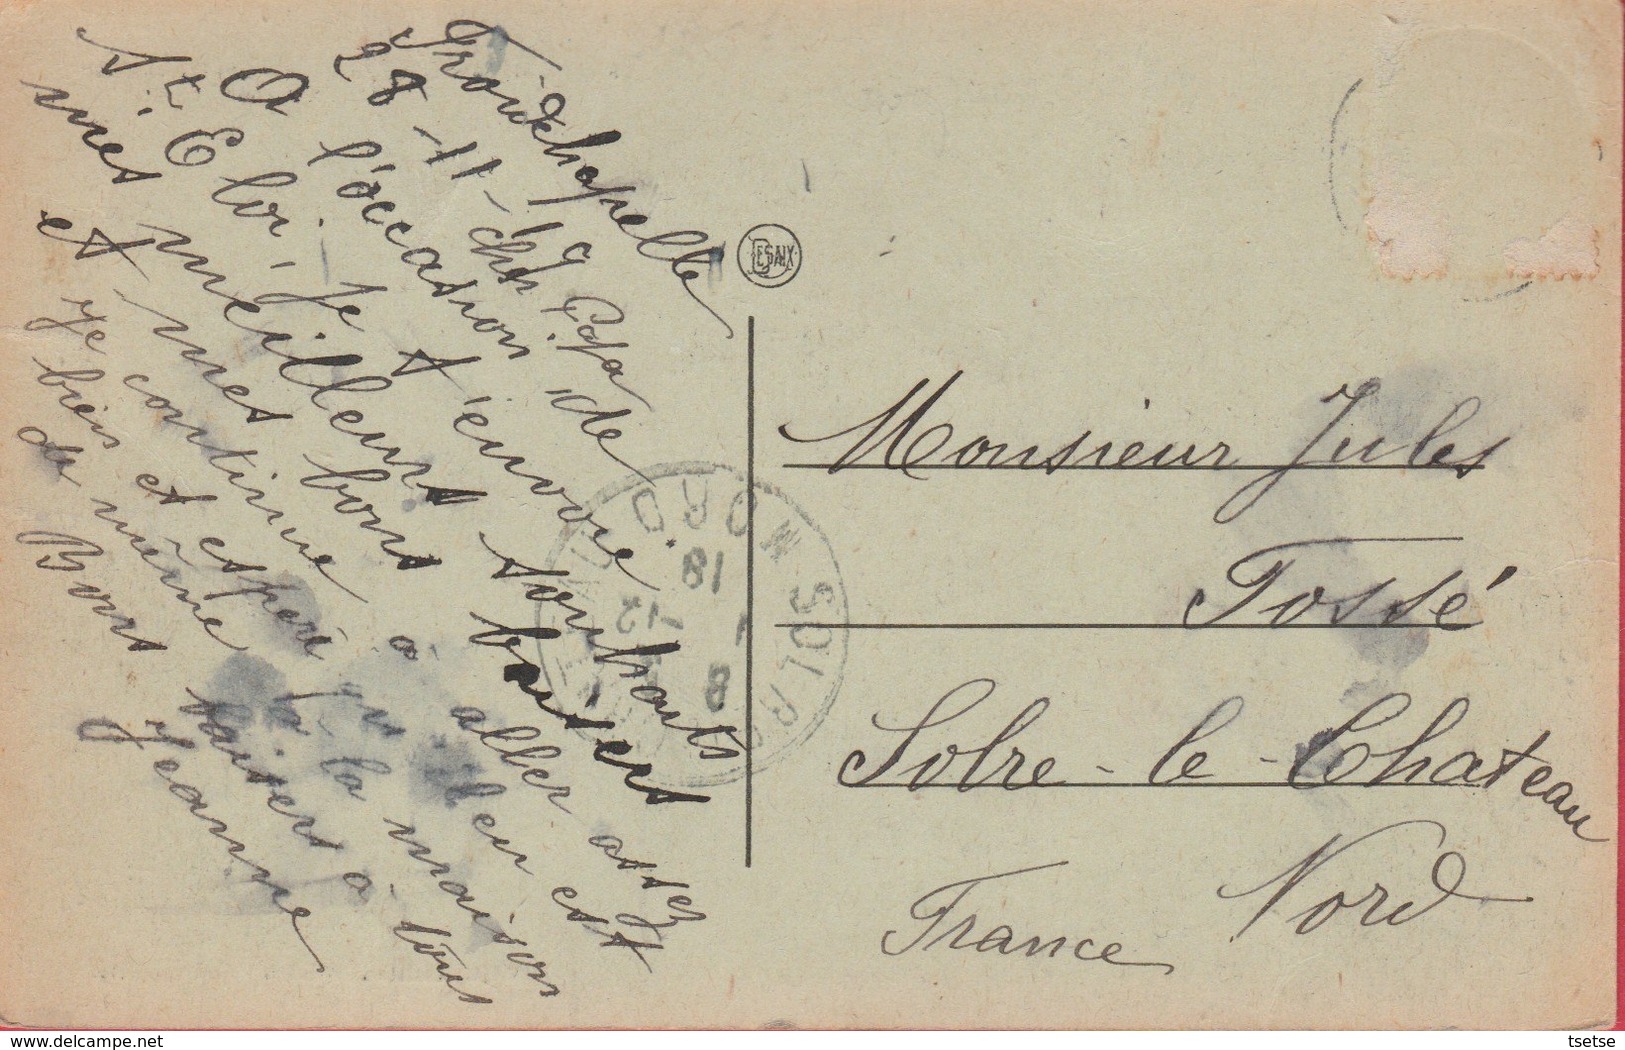 Froidchapelle
28-11-19
Cher Papa
A l'occasion de
St Eloi, je t'envoie
mes meilleurs souhaits
et mes bons baisers
Je continue à aller assez
bien et espère qu'il en est
de même à la maison
Bons baisers à tous
Jeanne
DESAIX
SOLRE
NORD
18
1
-12
Monsieur Jules
Fossé
Solre-le-Chateau
Nord
France
delcampe.net
tsetse